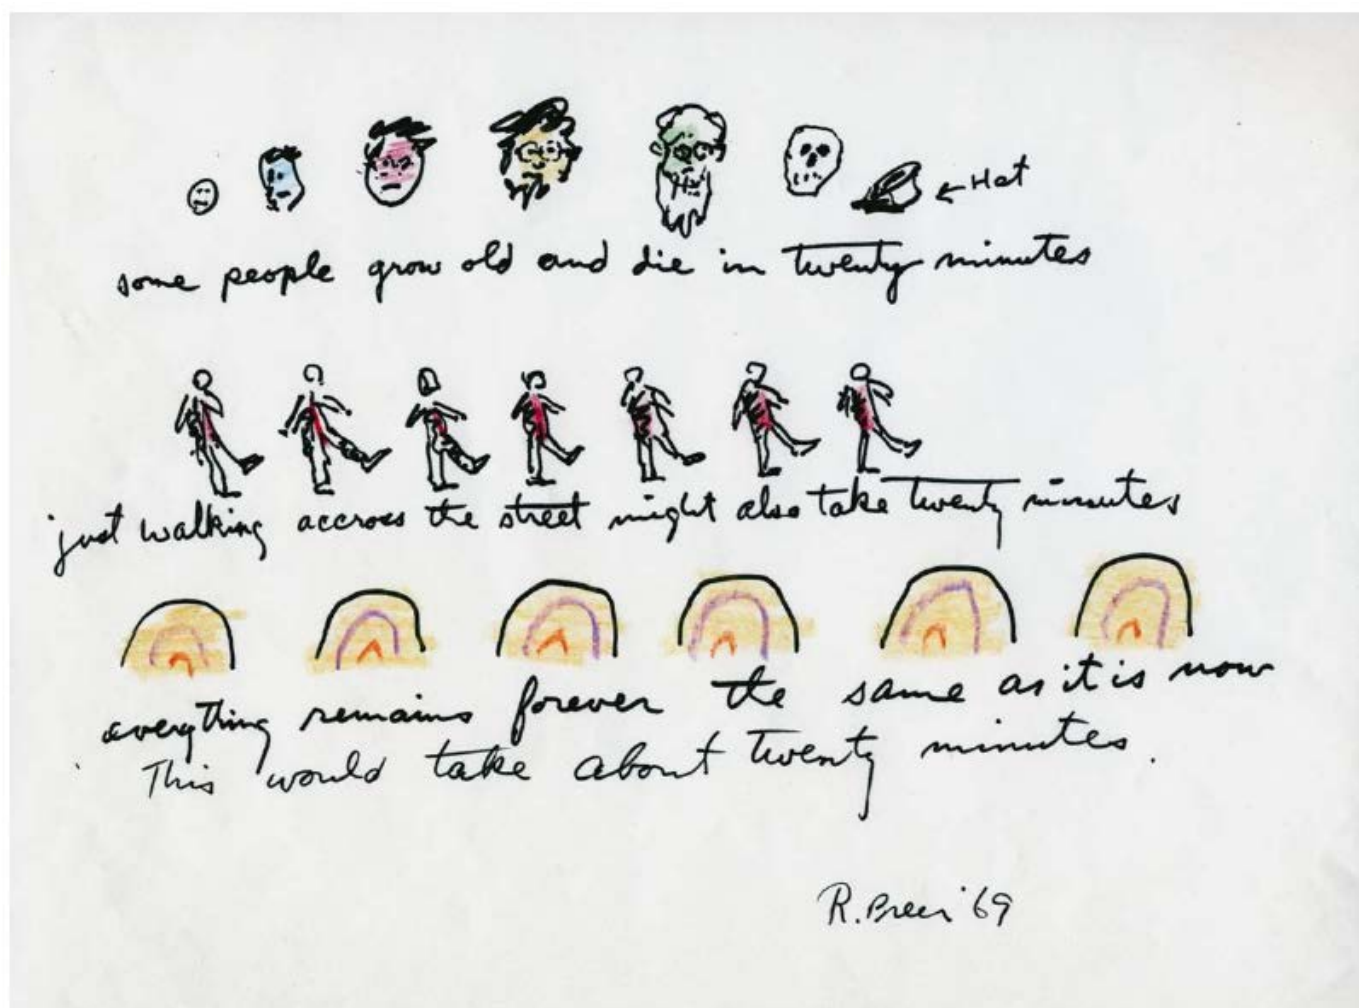 ← Hat
some people grow old and die in twenty minutes
just walking accross the street might also take twenty minutes
everything remains forever the same as it is now
This would take about twenty minutes.
R. Breer '69